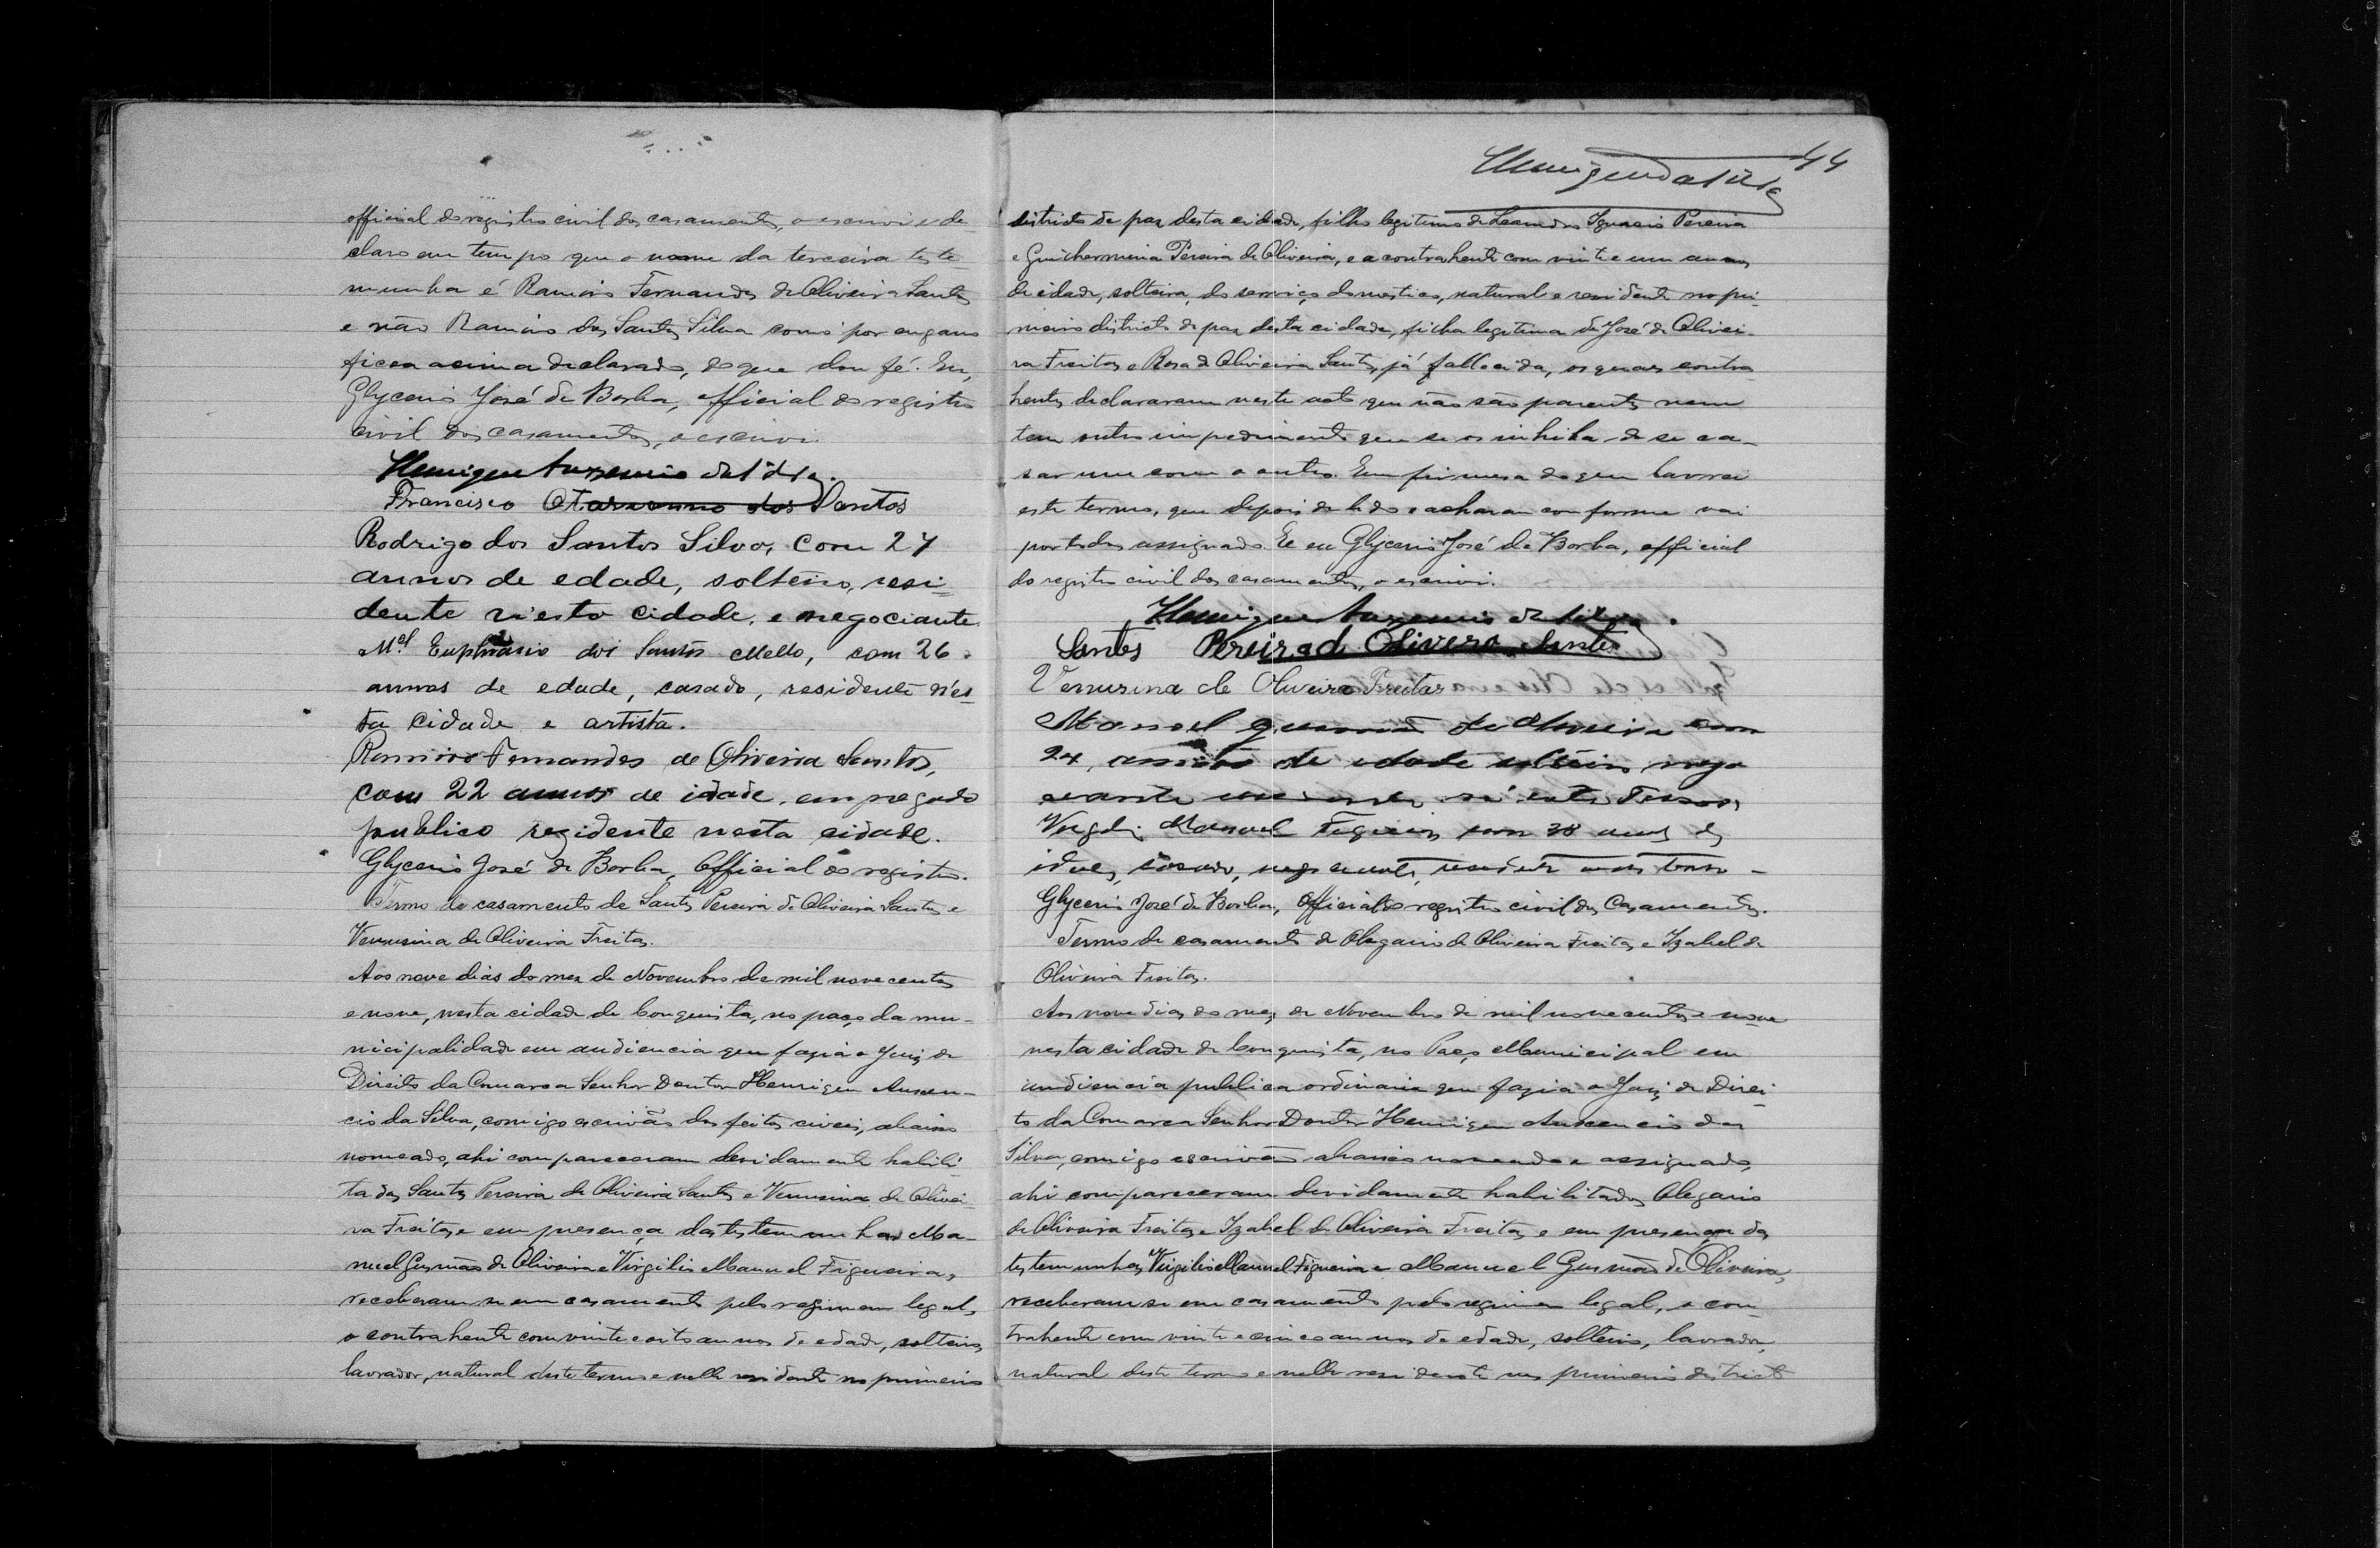 official do registro civil dos casamentos, o escrevi e de-
claro em tempo que o nome da terceira teste-
munha é Ramiro Fernandes de Oliveira Santos
e não Ramiro dos Santos Silva como por engano
ficou acima declarado, do que dou fé. Eu,
Glycerio José de Borba, official do registro
civil dos casamentos, o escrevi.
Henrique Auxencio da Silva.
Francisco dos Santos
Rodrigo dos Santos Silva, com 27
annos de edade, solteiro, resi-
dente n'esta cidade, e negociante.
M.el Euphrasio dos Santos Mello, com 26
annos de edade, casado, residente n'es-
ta cidade e artista.
Ramiro Fernandes de Oliveira Santos,
com 22 annos de idade, empregado
publico rezidente nesta cidade.
Glycerio José de Borba, Official do registro.
Termo de casamento de Santos Pereira de Oliveira Santos e
Venusina de Oliveira Freitas.
Aos nove dias do mez de Novembro de mil nove centos
e nove, nesta cidade de Conquista, no paço da mu-
nicipalidade em audiencia que fazia o Juiz de
Direito da Comarca Senhor Doutor Henrique Auxen-
cio da Silva, comigo escrivão dos feitos civeis, abaixo
nomeado, ahi compareceram devidamente habili-
tados Santos Pereira de Oliveira Santos e Venusina de Olivei-
ra Freitas e em presença das testemunhas Ma-
nuel Gusmão de Oliveira e Virgilio Manuel Figueira,
receberam-se em casamento pelo regimem legal,
o contrahente com vinte e oito annos de edade, solteiro,
lavrador, natural deste termo e nelle residente no primeiro
44
Henrique da Silva
districto de paz desta cidade, filho legitimo de Leandro Ignacio Pereira
e Guilhermina Pereira de Oliveira, e a contrahente com vinte e um annos
de edade, solteira, do serviço domestico, natural e residente no pri-
meiro districto de paz desta cidade, filha legitima de José de Olivei-
ra Freitas e Rosa de Oliveira Santos, já fallecida, os quaes contra-
hentes declararam neste acto que não são parentes nem
tem outro impedimento que se os inhiba de se ca-
sar um com o outro. Em firmesa do que lavrei
este termo, que depois de lido e acharam conforme vai
por todos assignado. E eu Glycerio José de Borba, official
do registro civil dos casamentos, o escrevi.
Henrique Auxencio da Silva.
Santos Pereira d Olivera Santos
Venusina de Oliveira Freitas
Manoel de Oliveira com
24, annos de edade solteiro nego
Manuel com 38 annos de
casado,
Glycerio José de Borba, Official do registro civil dos Casamentos.
Termo de casamento de Olegario de Oliveira Freitas e Izabel de
Oliveira Freitas.
Aos nove dias do mez de Novembro de mil nove centos e nove
nesta cidade de Conquista, no Paço Municipal em
audiencia publica ordinaria que fazia o Juiz de Direi-
to da Comarca Senhor Doutor Henrique Auxencio da
Silva, comigo escrivão abaixo nomeado e assignado,
ahi compareceram devidamente habilitados Olegario
de Oliveira Freitas e Izabel de Oliveira Freitas e em presença das
testemunhas Virgilio Manuel Figueira e Manuel Gusmão de Oliveira,
receberam-se em casamento pelo regimen legal, o con-
trahente com vinte e cinco annos de edade, solteiro, lavrador,
natural deste termo e nelle residente no primeiro districto